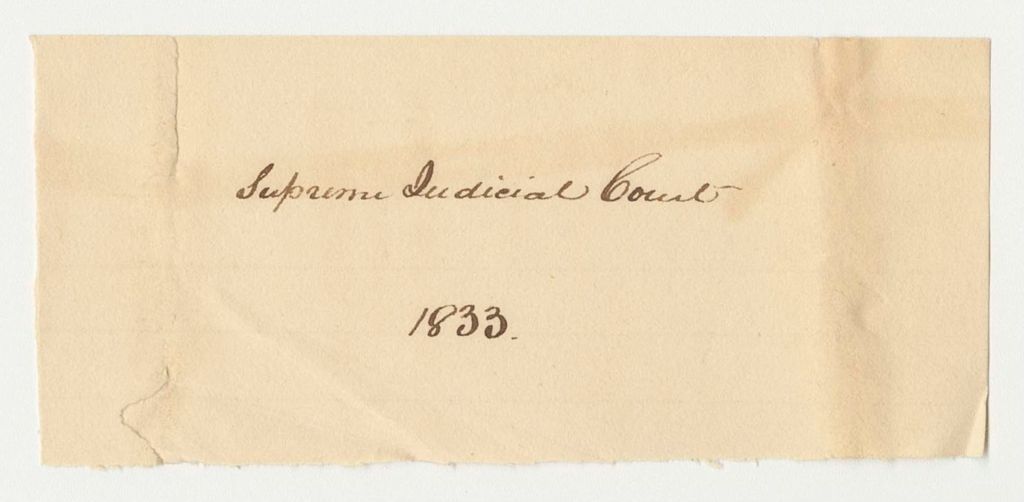 Supreme Judicial Court
1833.